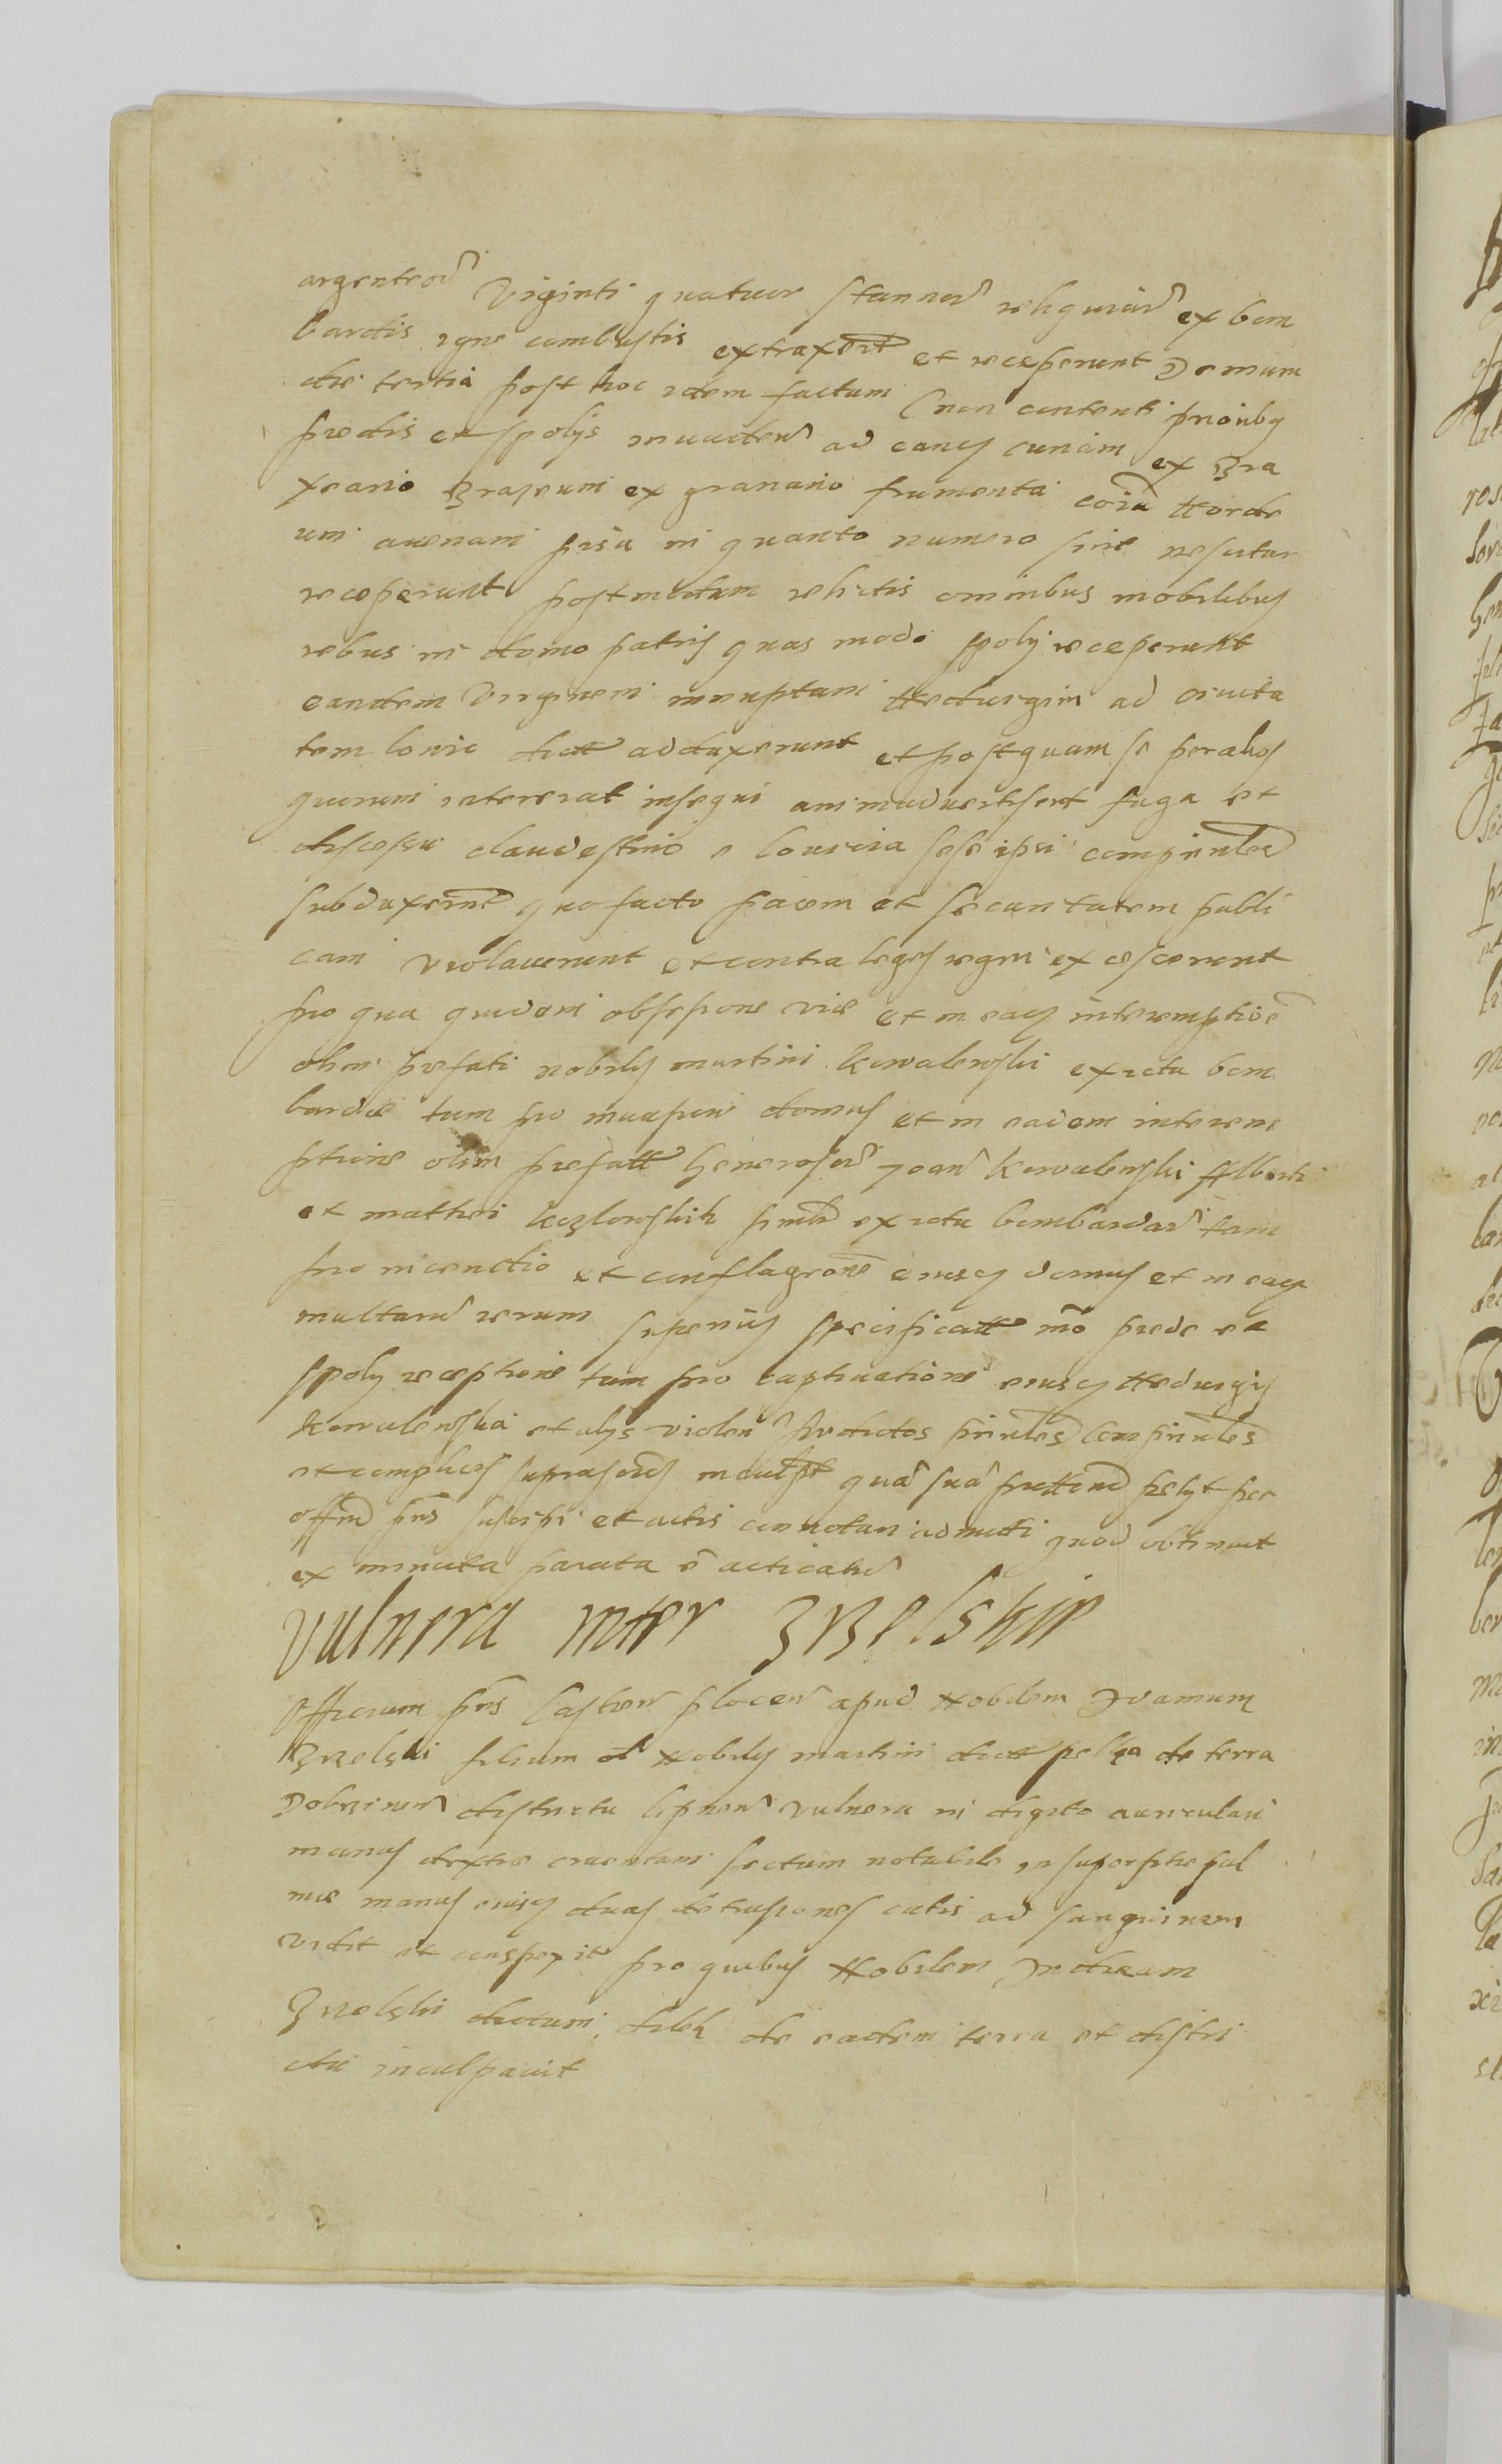 argenteor Viginti quatuor stanneor reliquiar ex bom
bardis igne combustis extraxert et receperunt Demum
die tertia post hoc idem factum non contenti prioribq
predis et spolys invaden ad eanq curiam ex bra
xeario braseum ex granario frumenta eoia Horde
um avenam pisa in quanto numero sint nescitur
receperunt postmodum relictis omnibus mobilibus
rebus in domo patris quas modo spoly receperunt
eandem Virginem innuptam Hedvigim ad civita
tem lovic dict adduxerunt et postquam se per alios
quorum intererat insequi animadvertisent fuga et
discessu claudestino e lovicia sese ipsi comprinles
subduxerint quo facto pacem et securitatem publi
cam violaverunt et contra leges regni excescerunt
pro qua quidem obsesione vie et in eaq interemptioe
olim prefati nobilis martini Kowalewski ex ictu bom
bardae tum pro invasione domus et in eadem interem
ptione olim prefatt Generosor Joan Kowalewski Alberti
et mathei kozlowskich ex ictu bombardar tam
pro incendio et conflagrone eiusq domus et in eaq
multaru rerum superius specificatt mo prede et
spoly receptione tum pro captivatione eiusq Hedvigis
Kowalewska et alys violen predictos prinles Comprinles
et complices suprascr inculpt qua sua pettit per
offm pns suscipi et actis connotari admitti quod obtinuit
ex minuta parata e acticatu
Vulnera inter Zrzelskie
Officium pns Castren plocen apud Nobilem Adamum
Zrzelski filium ol Nobilis martini dict pelka de terra
Dobrzinen districtu lipnen vulnera in digito auriculari
manus dextre cruentam sectum notabile in superficie pal
me manus eiusq duas detusiones cutis ad sanguinem
vidit et conspexit pro quibus Nobilem Andream
Zrzelski dictum de eadem terra et distri
ctu inculpavit